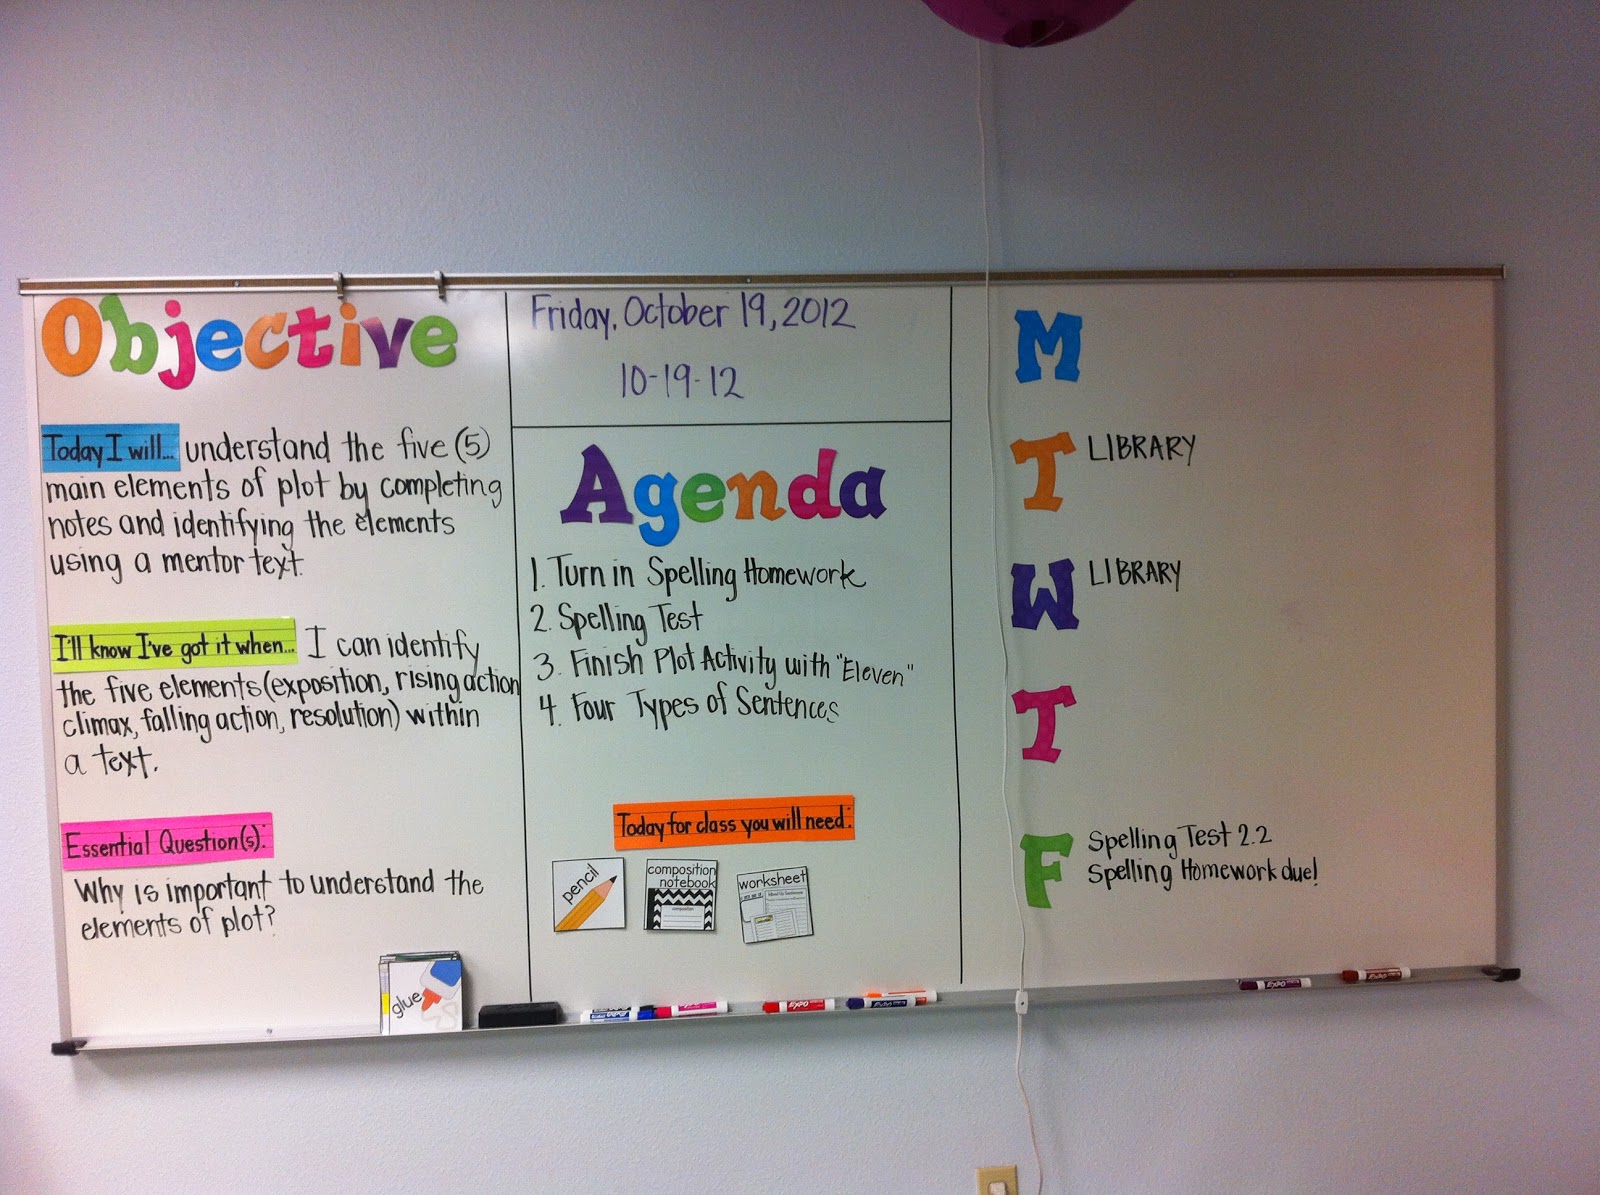 Objective
Today I will... understand the five (5)
main elements of plot by completing
notes and identifying the elements
using a mentor text.
I'll know I've got it when... I can identify
the five elements (exposition, rising action
climax, falling action, resolution) within
a text.
Essential Question(s):
Why is important to understand the
elements of plot?
glue
Friday, October 19, 2012
10-19-12
Agenda
1. Turn in Spelling Homework
2. Spelling Test
3. Finish Plot Activity with "Eleven"
4. Four Types of Sentences
Today for class you will need:
pencil
composition
notebook
composition
worksheet
M
T LIBRARY
W LIBRARY
T
F Spelling Test 2.2
Spelling Homework due!
EXPO
EXPO